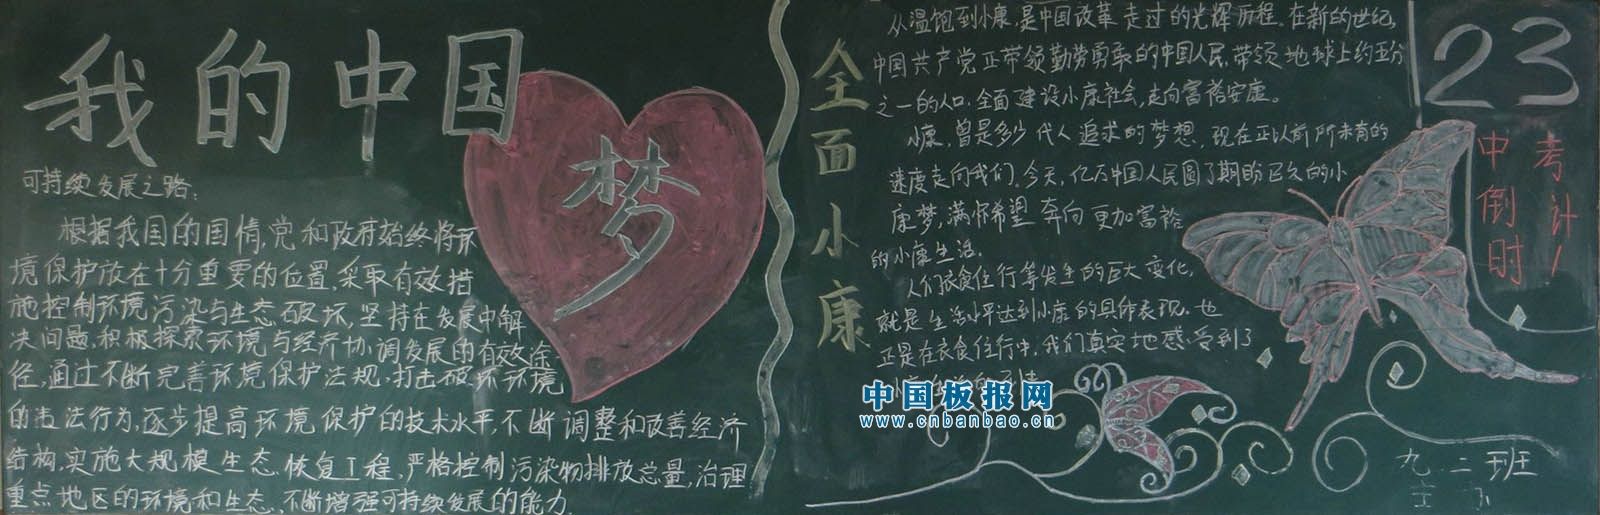 我的中国
梦
可持续发展之路:
根据我国的国情,党和政府始终将环
境保护放在十分重要的位置,采取有效措
施控制环境污染与生态破坏,坚持在发展中解
决问题,积极探索环境与经济协调发展的有效途
径,通过不断完善环境保护法规,打击破坏环境
的违法行为,逐步提高环境保护的技术水平,不断调整和改善经济
结构,实施大规模生态恢复工程,严格控制污染物排放总量,治理
重点地区的环境和生态,不断增强可持续发展的能力.
全面小康
从温饱到小康,是中国改革走过的光辉历程。在新的世纪,
中国共产党正带领勤劳勇敢的中国人民,带领地球上约五分
之一的人口,全面建设小康社会,走向富裕安康。
小康,曾是多少代人追求的梦想,现在正以前所未有的
速度走向我们。今天,亿万中国人民圆了期盼已久的小
康梦,满怀希望奔向更加富裕
的小康生活。
人们衣食住行等发生的巨大变化,
就是生活水平达到小康的具体表现。也
正是在衣食住行中,我们真实地感受到了
23
中考
倒计
时!
中国板报网
www.cnbanbao.cn
九.二班
主办